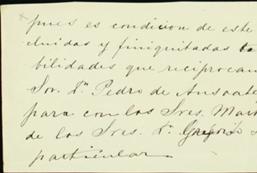 pues es condicion de este
cluidas y finiquitadas
bilidades que reciprocam
Sor. Dn Pedro de Ansoate
para con los Sres.
de los Sres. Dn Gregorio
particular